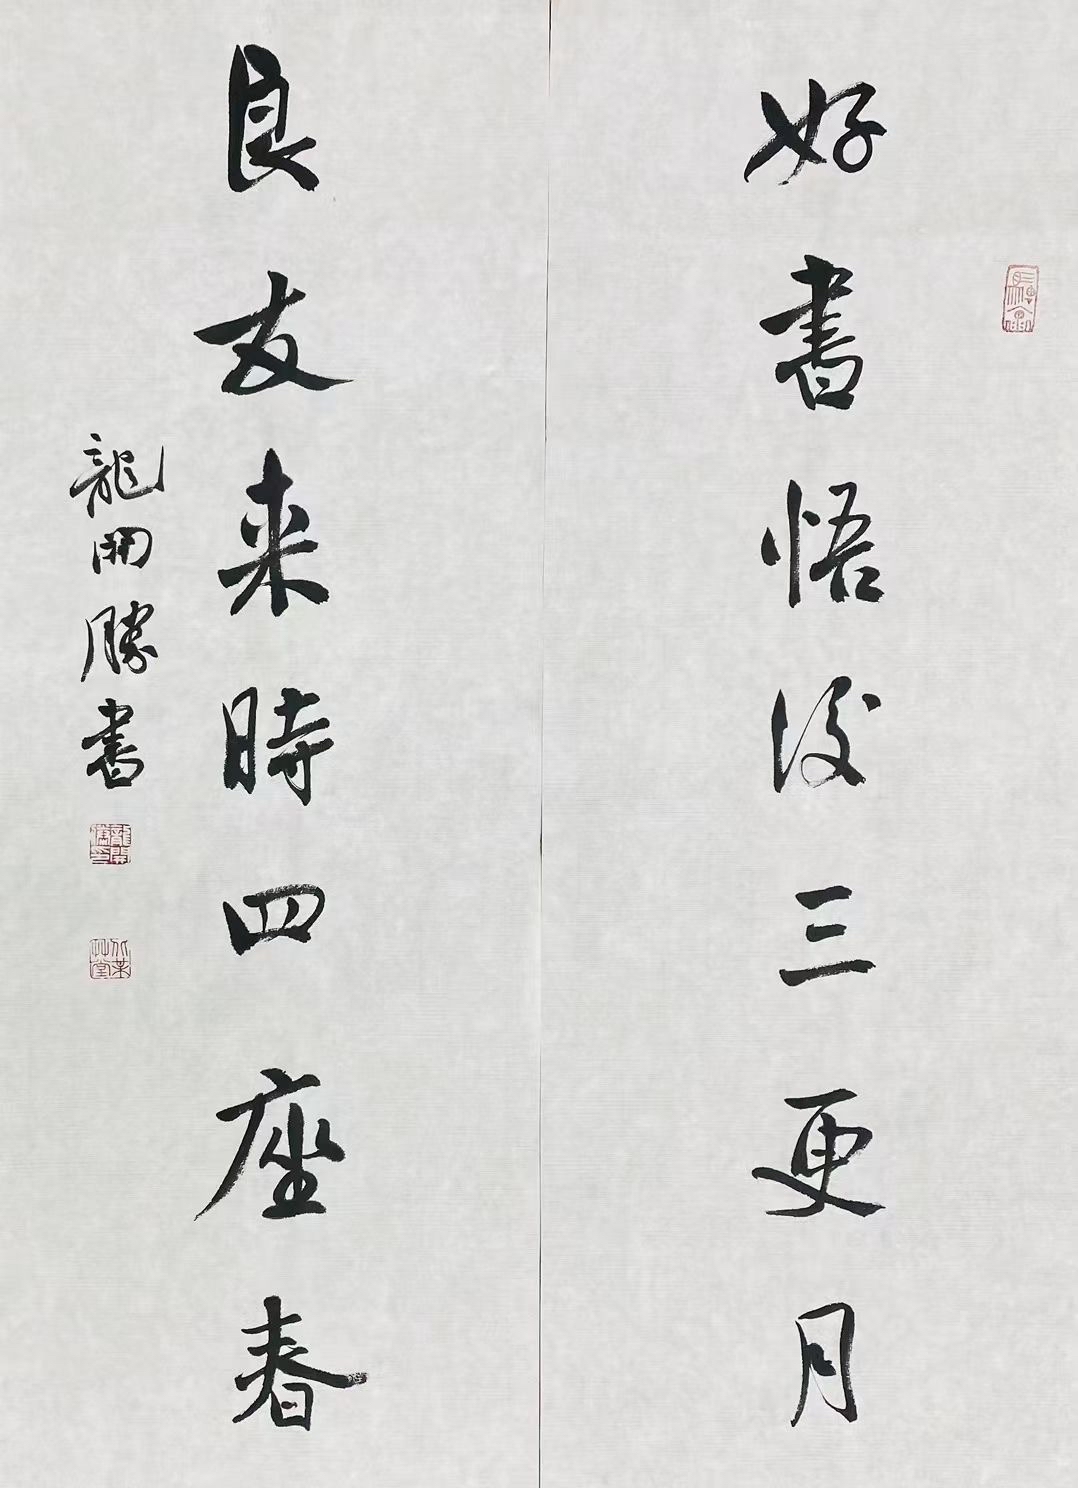 好書悟後三更月
良友来時四座春
龍開勝書